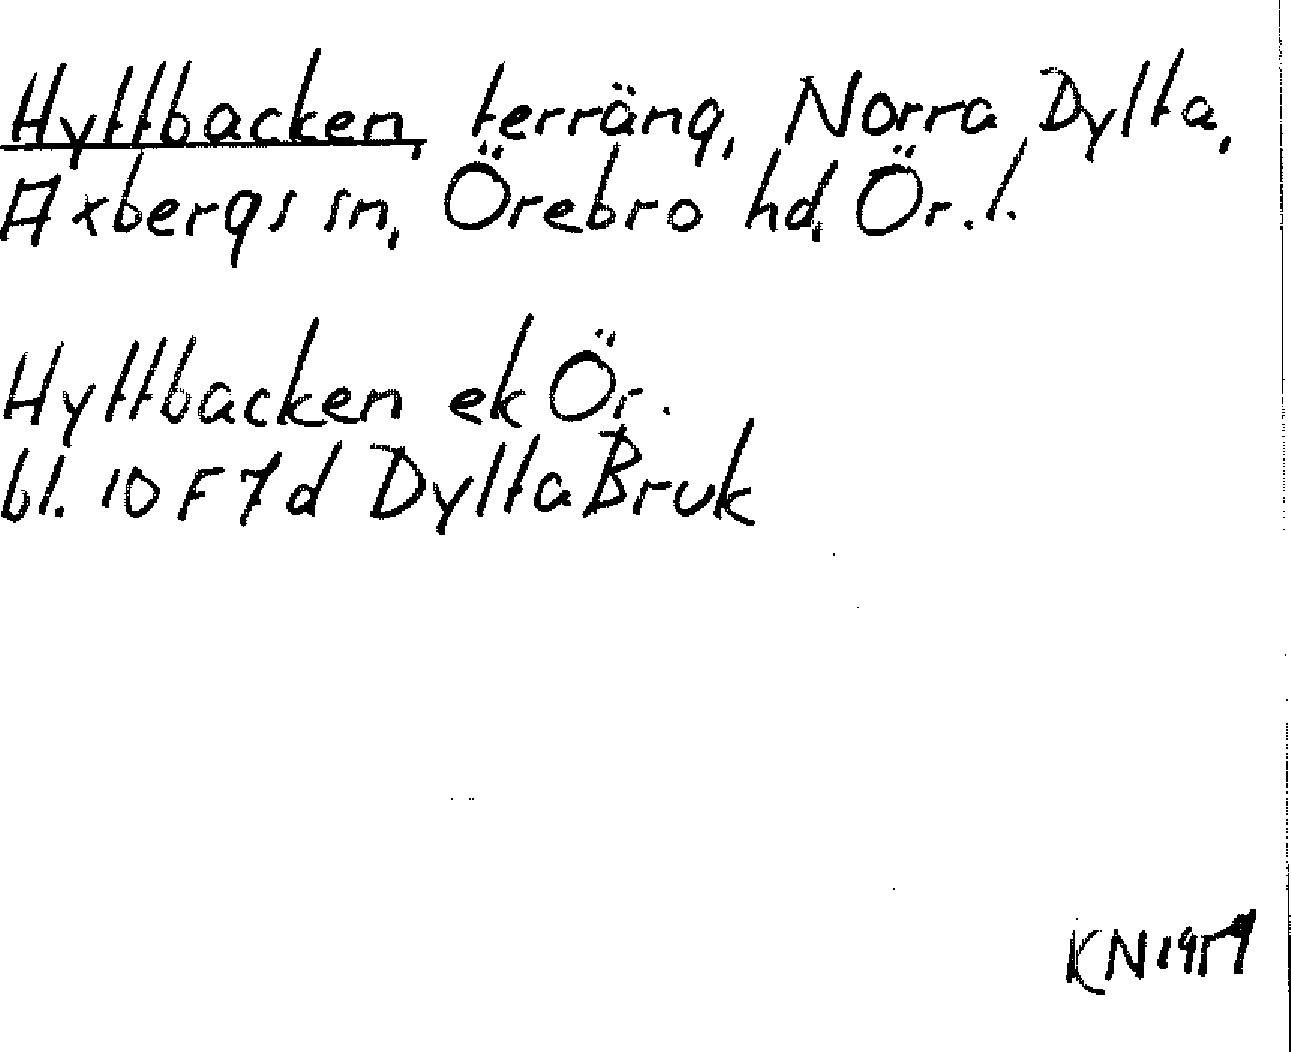 Hyttbacken, terräng, Norra Dylta,
Axbergs sn, Örebro hd, Ör. l.
Hyttbacken ek Ör.
bl. 10 F 7 d Dylta Bruk
KN